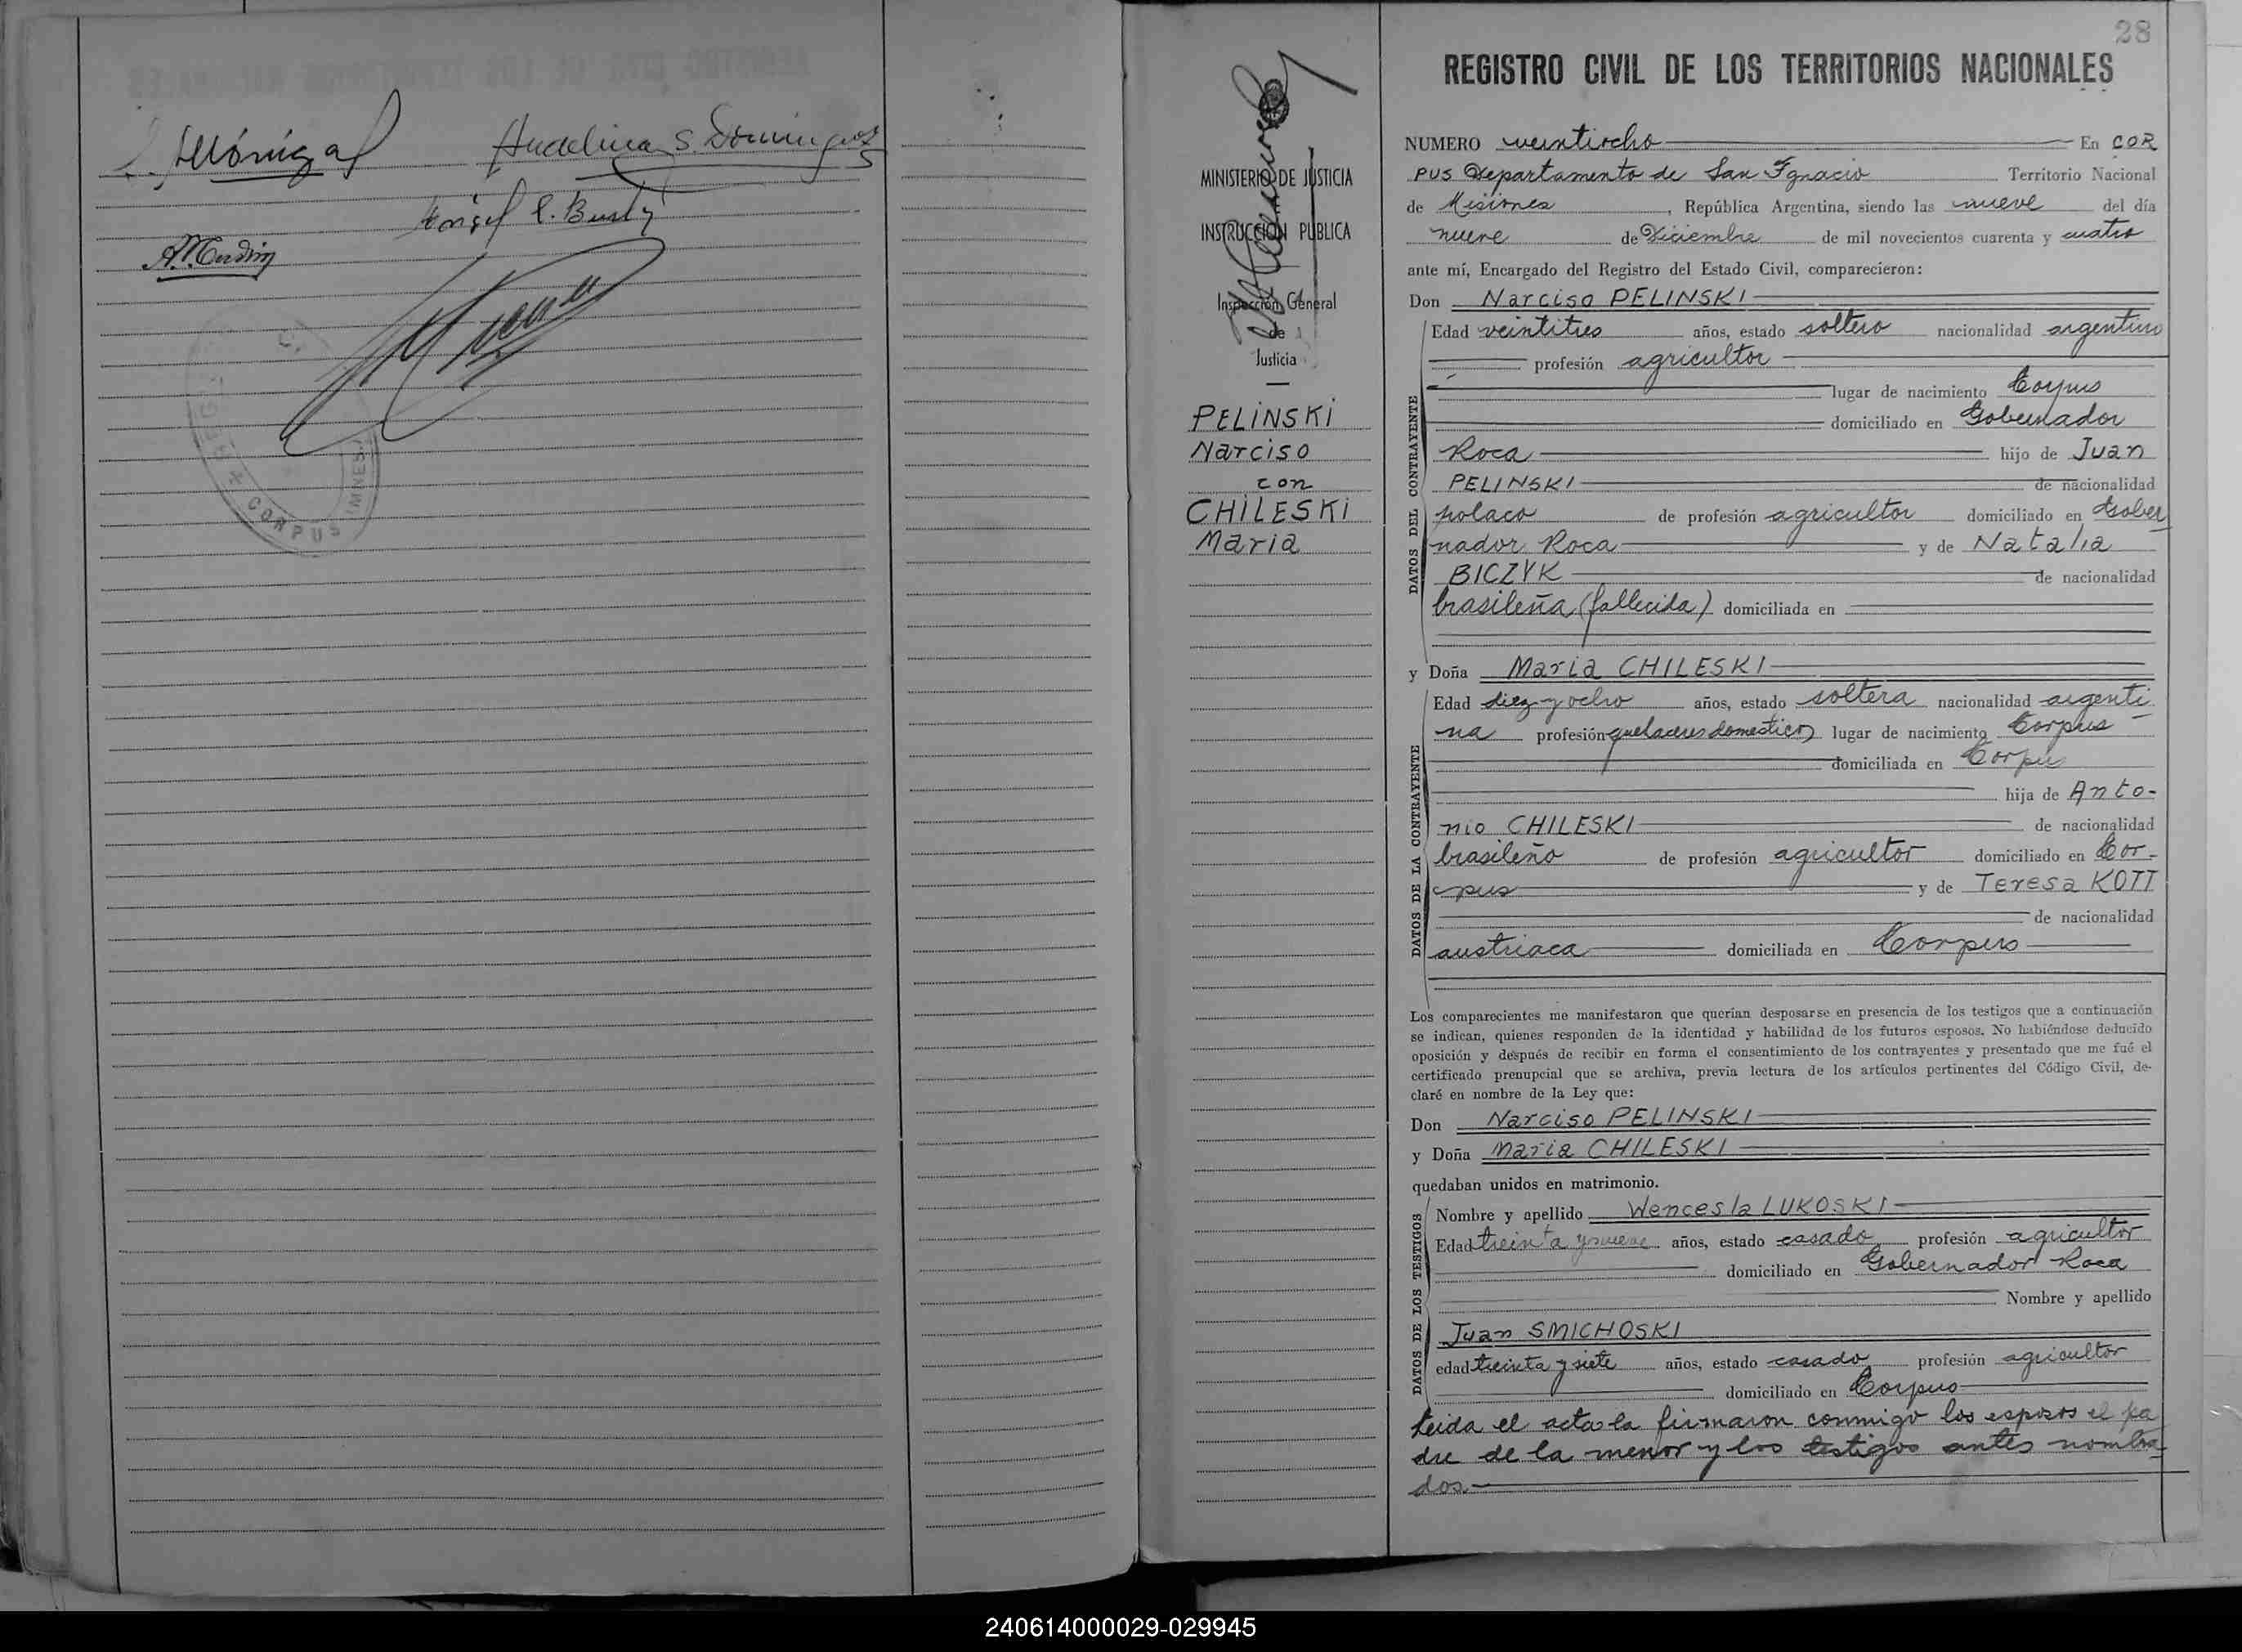 Angel C.
CORPUS
28
REGISTRO CIVIL DE LOS TERRITORIOS NACIONALES
MINISTERIO DE JUSTICIA
INSTRUCCIÓN PÚBLICA
Inspección General
de
Justicia
PELINSKI
Narciso
con
CHILESKI
Maria
NUMERO veintiocho En COR
PUS Departamento de San Ignacio Territorio Nacional
de Misiones, República Argentina, siendo las nueve del día
nueve de Diciembre de mil novecientos cuarenta y cuatro
ante mí, Encargado del Registro del Estado Civil, comparecieron:
Don Narciso PELINSKI
Edad veintitres años, estado soltero nacionalidad argentino
profesión agricultor
lugar de nacimiento Corpus
domiciliado en Gobernador
Roca hijo de Juan
PELINSKI de nacionalidad
polaco de profesión agricultor domiciliado en Gober
nador Roca y de Natalia
BICZYK de nacionalidad
brasileña (fallecida) domiciliada en
DATOS DEL CONTRAYENTE
y Doña Maria CHILESKI
Edad diez y ocho años, estado soltera nacionalidad argenti
na profesión quehaceres domestico lugar de nacimiento Corpus
domiciliada en Corpus
hija de Anto-
nio CHILESKI de nacionalidad
brasileño de profesión agricultor domiciliado en Cor-
pus y de Teresa KOTT
de nacionalidad
austriaca domiciliada en Corpus
DATOS DE LA CONTRAYENTE
Los comparecientes me manifestaron que querían desposarse en presencia de los testigos que a continuación
se indican, quienes responden de la identidad y habilidad de los futuros esposos. No habiéndose deducido
oposición y después de recibir en forma el consentimiento de los contrayentes y presentado que me fué el
certificado prenupcial que se archiva, previa lectura de los artículos pertinentes del Código Civil, de-
claré en nombre de la Ley que:
Don Narciso PELINSKI
y Doña Maria CHILESKI
quedaban unidos en matrimonio.
Nombre y apellido Wencesla LUKOSKI
Edad treinta y nueve años, estado casado profesión agricultor
domiciliado en Gobernador Roca
Nombre y apellido
Juan SMICHOSKI
edad treinta y siete años, estado casado profesión agricultor
domiciliado en Corpus
DATOS DE LOS TESTIGOS
Leida el acta la firmaron conmigo los esposos el pa
dre de la menor y los testigos antes nombra
dos.
240614000029-029945